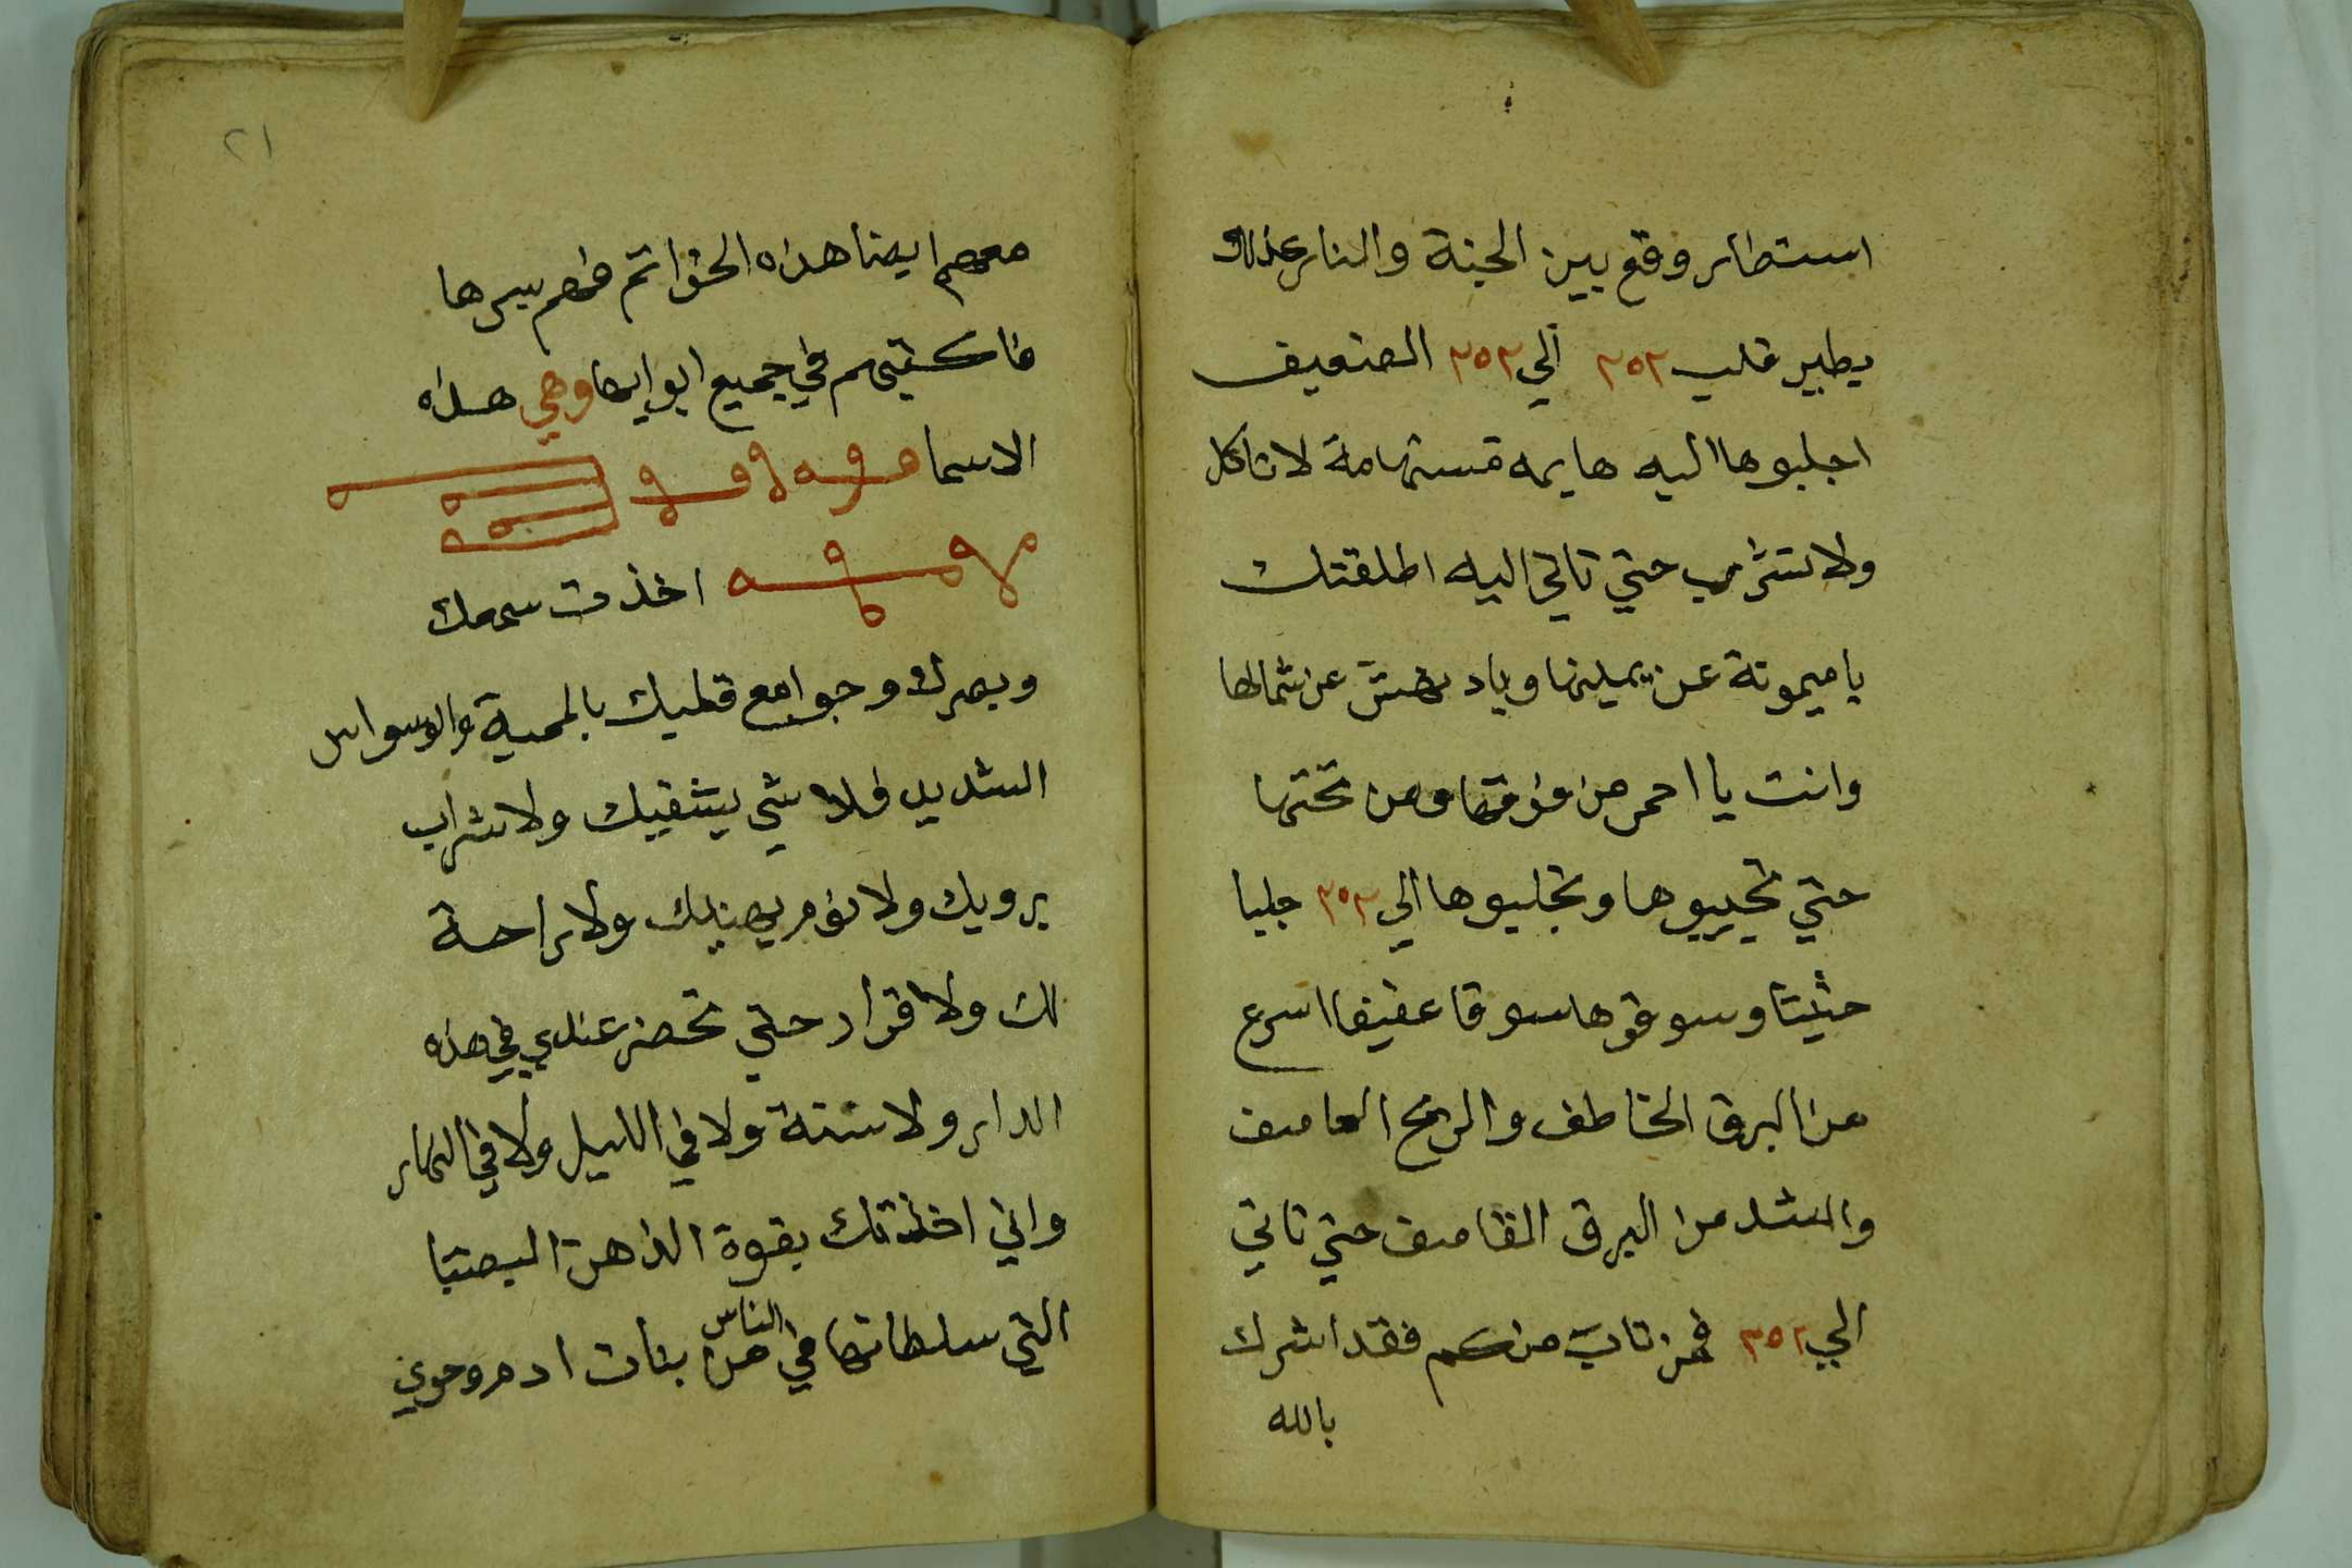 استطار وقع بين الجنة والنار كذلك
يطير قلب ٢٥٢ الي ٢٥٢ الضعيف
اجلبوها اليه هايمه مستهامة لا تاكل
ولا تشرب حتي تاتي اليه اطلقتك
يا ميمونة عن يمينها ويا دهنش عن شمالها
وانت يا احمر من فوقها ومن تحتها
حتي تجيبوها وتجلبوها الي ٢٥٢ جلبا
حثيثا وسوقوها سوقا عفيفا اسرع
من البرق الخاطف والريح العاصف
والشد من البرق القاصف حتي تاتي
الي ٢٥٢ فمن تاب منكم فقد اشرك
بالله
٢١
معهم ايضا هذه الخواتم فهم سرها
فاكتبهم في جميع ابوابها وهي هذه
الاسما
اخذت سمعك
وبصرك وجوامع قلبك بالمحبة والوسواس
الشديد فلا شي يشفيك ولا شراب
يرويك ولا نوم يهنيك ولا راحة
لك ولا قرار حتي تحضر عندي في هذه
الدار ولا سنة ولا في الليل ولا في النهار
واني اخذتك بقوة الذاهن البيضا
التي سلطانها في الناس من بنات ادم وحوي